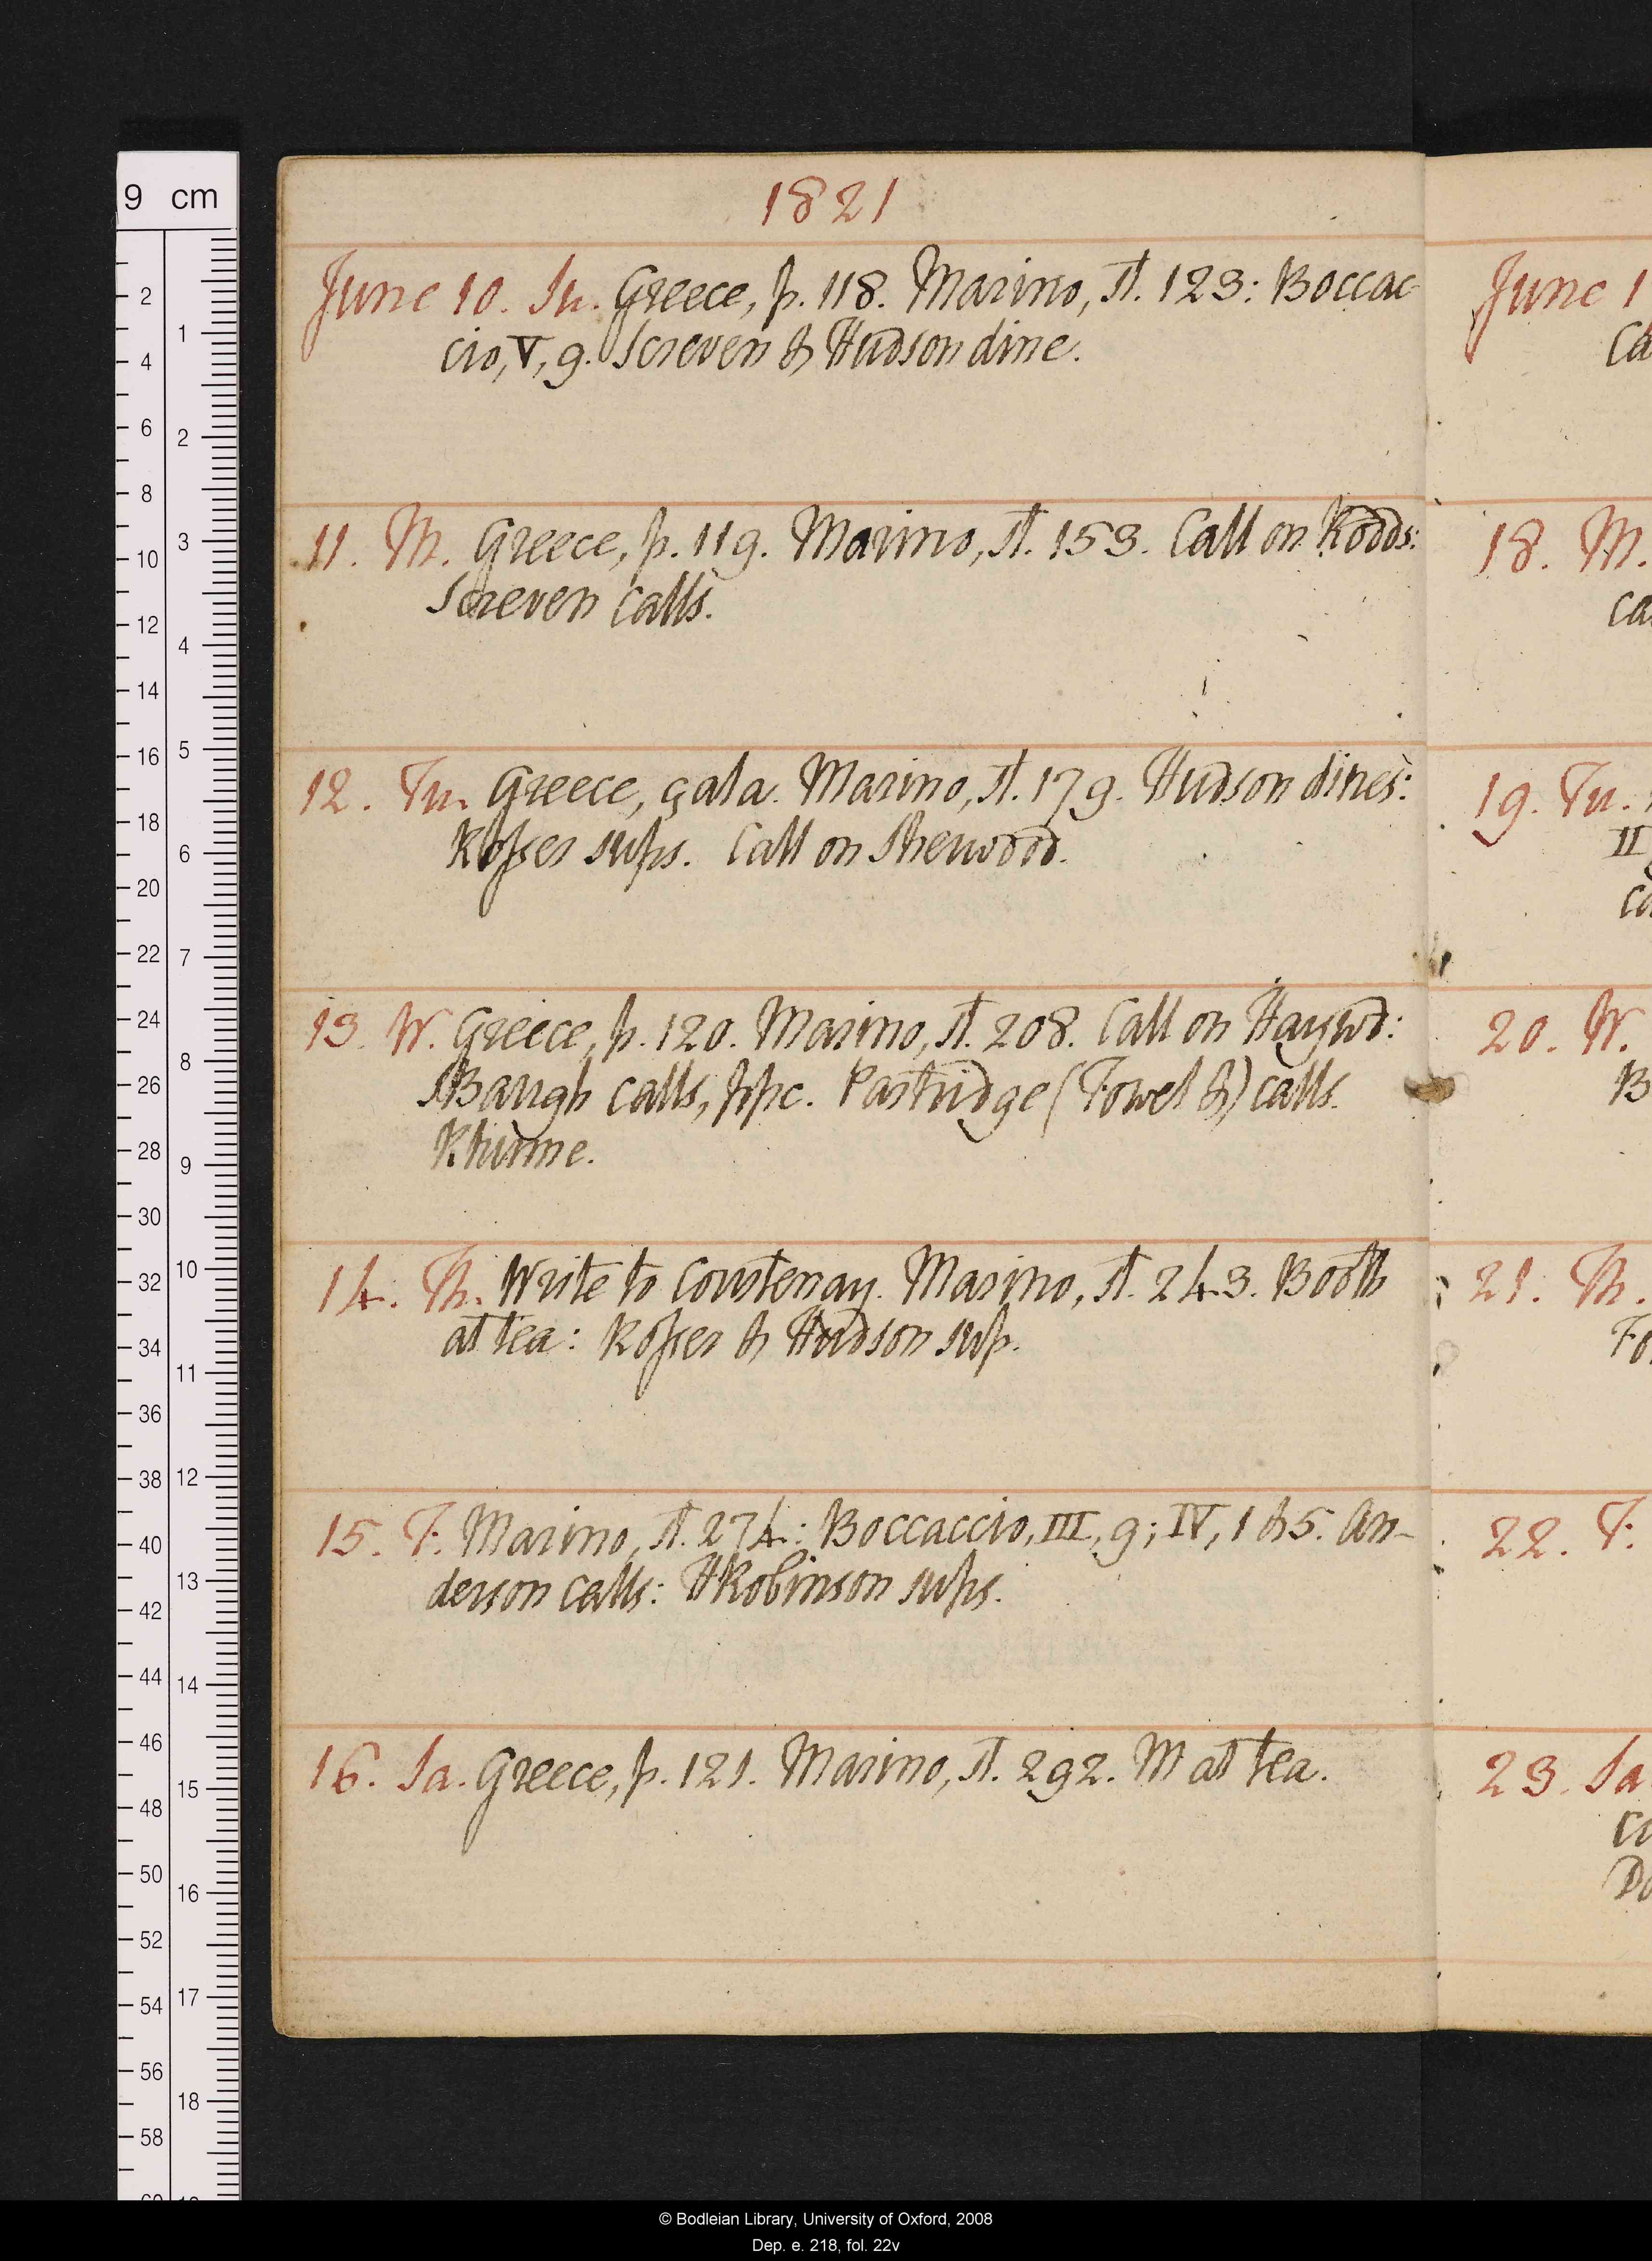 1821
June 10. Su. Greece, p. 118. Marino, st. 123: Boccac-
cio, V, 9. Screven & Hudson dine.
11. M. Greece, p. 119. Marino, st. 153. Call on Rodds:
Screven calls.
12. Tu. Greece, çala. Marino, st. 179. Hudson dines:
Rosser sups. Call on Sherwood.
13. W. Greece, p. 120. Marino, st. 208. Call on Haywd:
SBaugh calls, ppc. Partridge (Fowel &) calls.
Rhume.
14. Th. Write to Courtenay. Marino, st. 243. Booth
at tea: Rosser & Hudson sup.
15. F. Marino, st. 274: Boccaccio, III, 9; IV, 1 & 5. An-
derson calls: HRobinson sups.
16. Sa. Greece, p. 121. Marino, st. 292. M at tea.
June 1
Ca
18. M.
ca
19. Tu.
II
ca
20. W.
B
21. Th.
Fo
22. F.
23. Sa
Do
9 cm
2
4
6
8
10
12
14
16
18
20
22
24
26
28
30
32
34
36
38
40
42
44
46
48
50
52
54
56
58
1
2
3
4
5
6
7
8
9
10
11
12
13
14
15
16
17
18
© Bodleian Library, University of Oxford, 2008
Dep. e. 218, fol. 22v